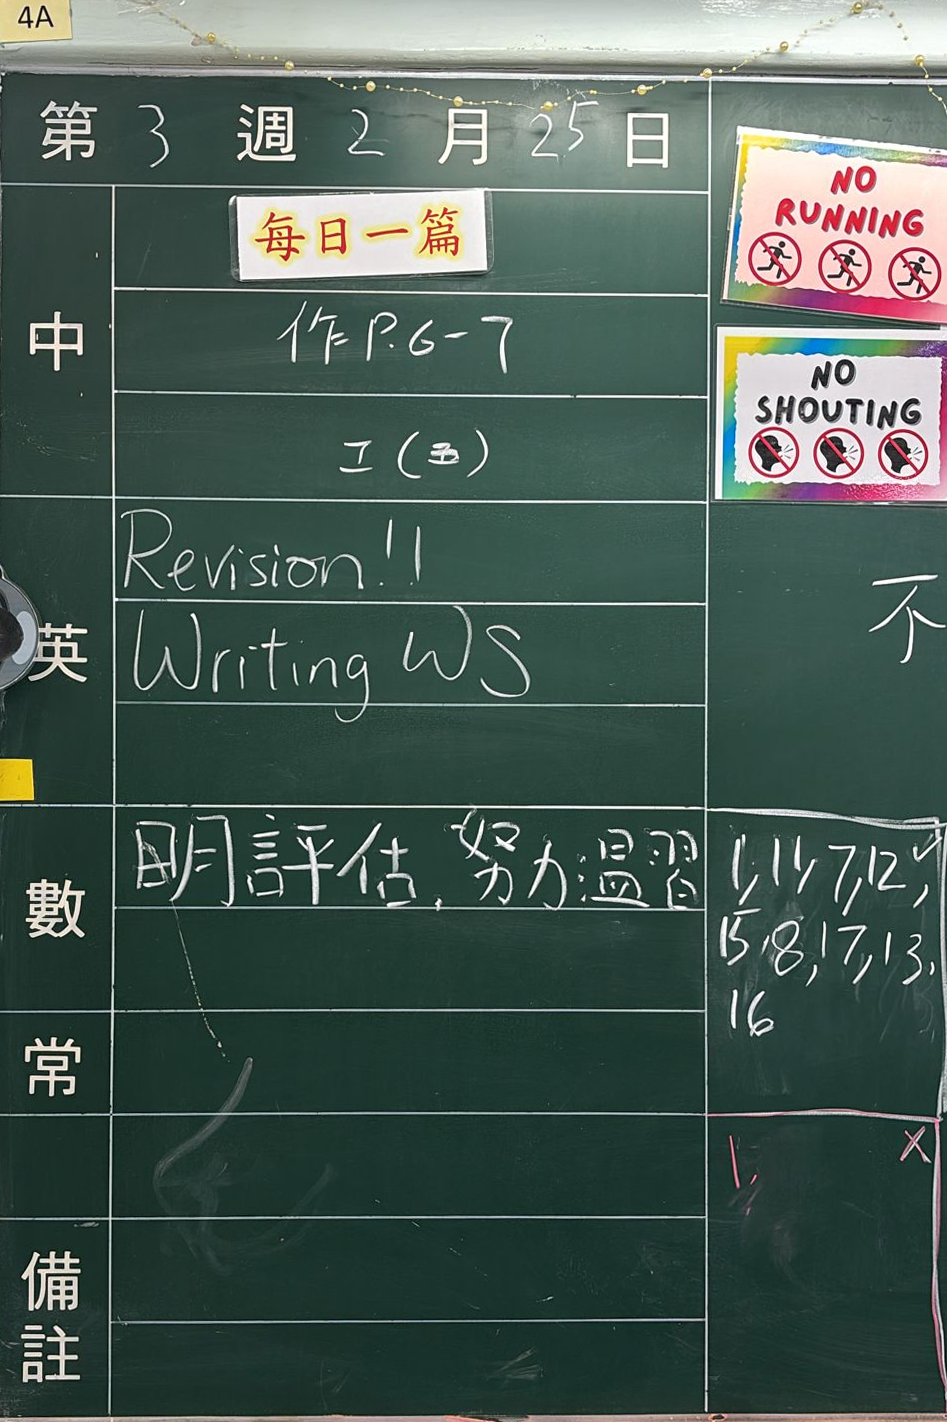 4A
第 3 週 2 月 25 日
每日一篇
NO
RUNNING
中
作 P.6-7
NO
SHOUTING
工(五)
英
Revision!!
Writing WS
不
數
明評估.努力溫習
1, 11, 7, 12, ✓
15, 8, 17, 13,
16
常
1, X
備註